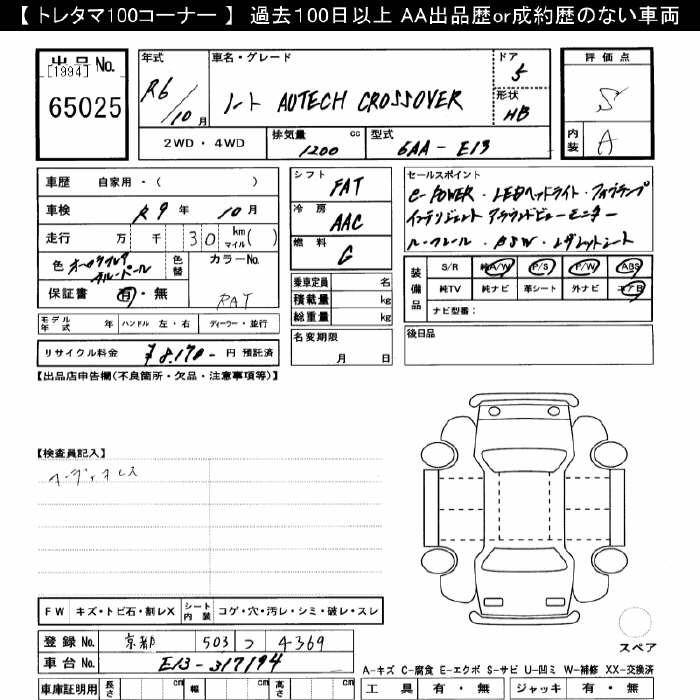 【 トレタマ100コーナー 】 過去100日以上 AA出品歴or成約歴のない車両
出品 No.
[1994]
65025
年式
R6/10月
車名・グレード
ノート AUTECH CROSSOVER
ドア
5
形状
HB
評価点
S
内装
A
2WD・4WD
排気量
1200 cc
型式
6AA-E13
車歴 自家用・( )
車検 R9年 10月
走行 万 千 30 km マイル( )
色
色替
カラーNo.
RAT
保証書 有・無
モデル年式 年 ハンドル 左・右 ディーラー・並行
リサイクル料金 ¥8,170- 円 預託済
シフト
FAT
冷房
AAC
燃料
G
乗車定員 名
積載量 kg
総重量 kg
名変期限
月 日
セールスポイント
e-POWER・LEDヘッドライト・フォグランプ
インテリジェント アラウンドビューモニター
ルーフレール・BSW・レザレットシート
装備品
S/R 純A/W P/S P/W ABS
純TV 純ナビ 革シート 外ナビ エアB
ナビ型番:
後日品
【出品店申告欄(不良箇所・欠品・注意事項等)】
【検査員記入】
オーディオレス
FW キズ・トビ石・割レX シート内装 コゲ・穴・汚レ・シミ・破レ・スレ
登録 No. 京都 503 つ 4369
車台 No. E13-317194
車庫証明用 長さ cm 幅 cm 高さ cm
スペア
A-キズ C-腐食 E-エクボ S-サビ U-凹ミ W-補修 XX-交換済
工具 有・無 ジャッキ 有・無